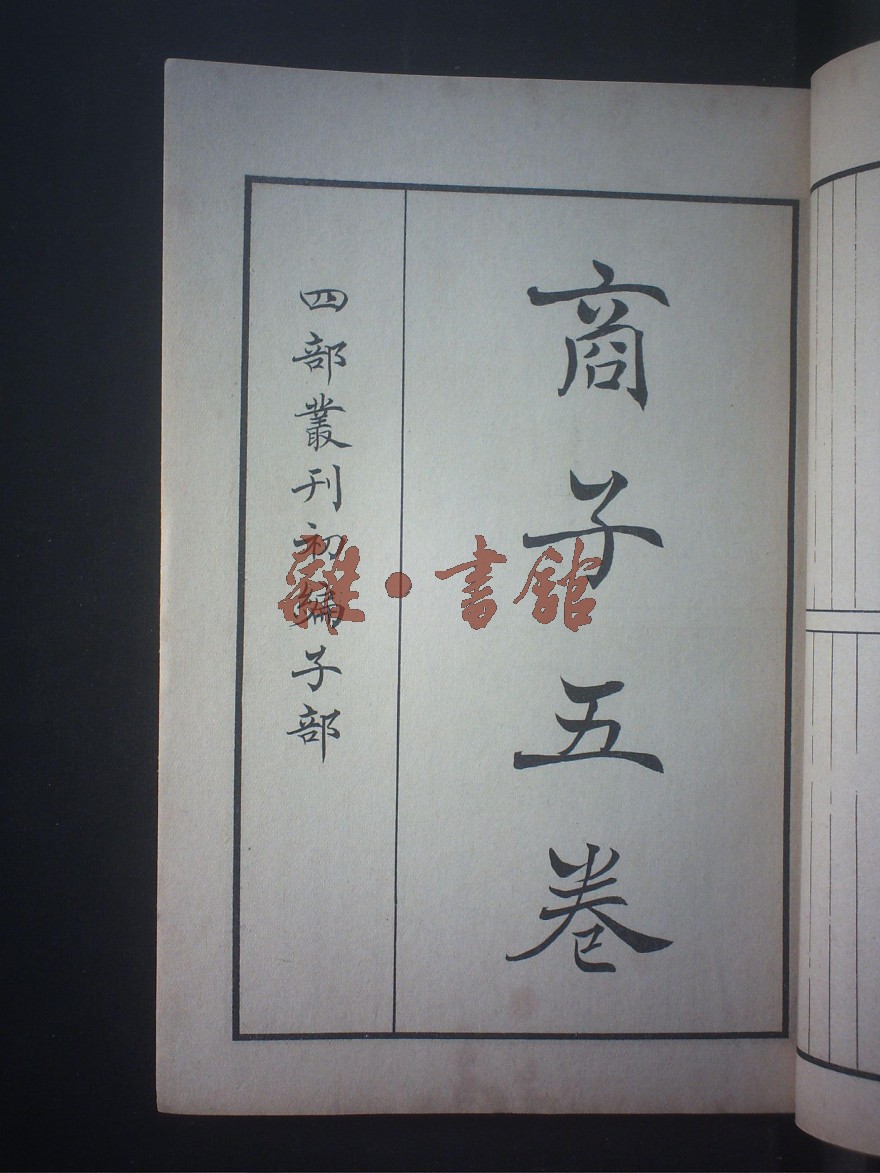 商子五卷
四部叢刊初編子部
雜·書館